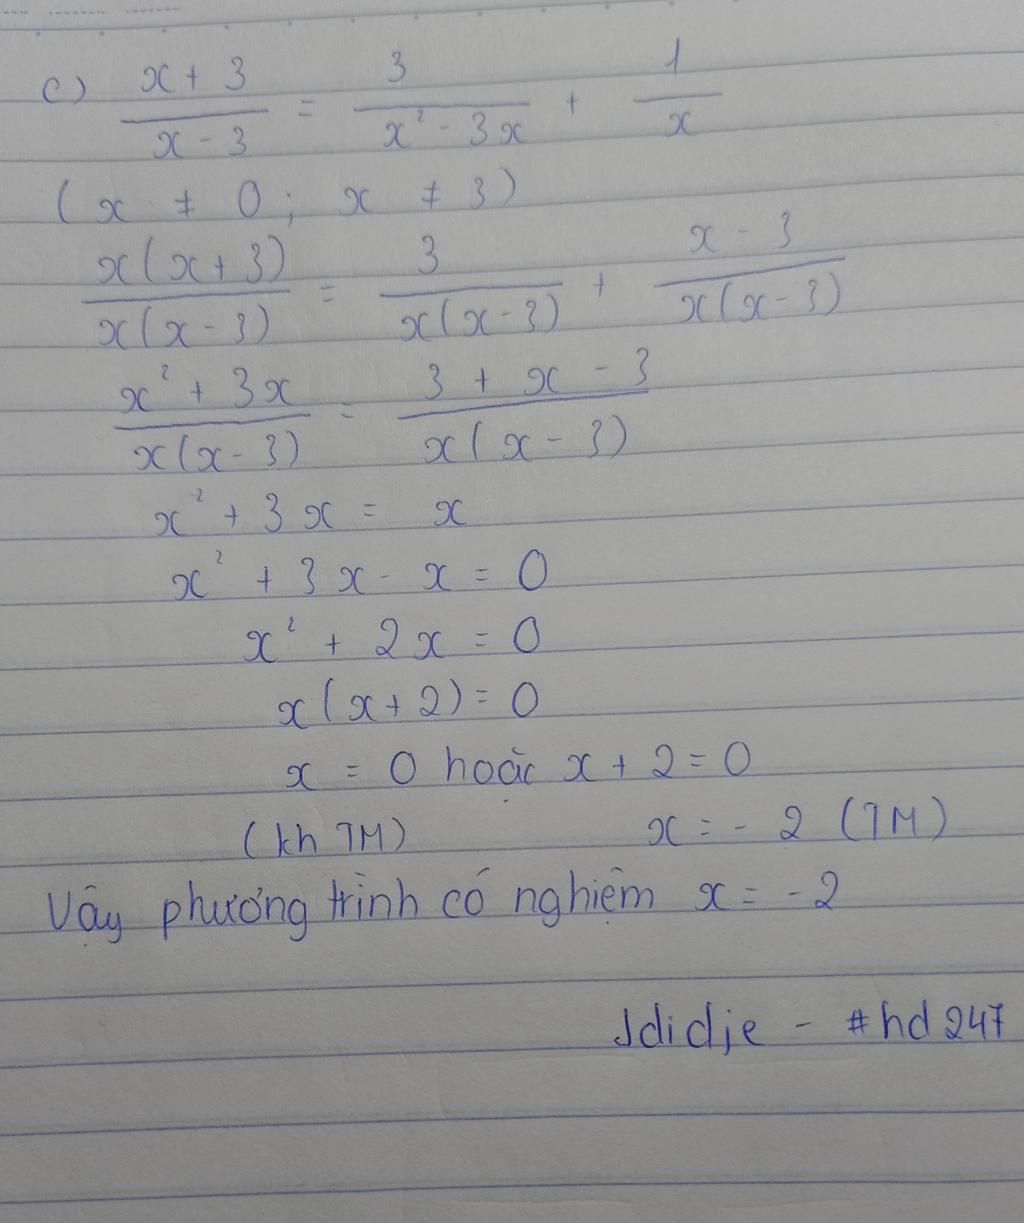 c) (x + 3)/(x - 3) = 3/(x² - 3x) + 1/x
(x ≠ 0; x ≠ 3)
x(x + 3)/x(x - 3) = 3/x(x - 3) + (x - 3)/x(x - 3)
(x² + 3x)/x(x - 3) = (3 + x - 3)/x(x - 3)
x² + 3x = x
x² + 3x - x = 0
x² + 2x = 0
x(x + 2) = 0
x = 0 hoặc x + 2 = 0
(kh TM) x = - 2 (TM)
Vậy phương trình có nghiệm x = -2
Jdidje - #hd247